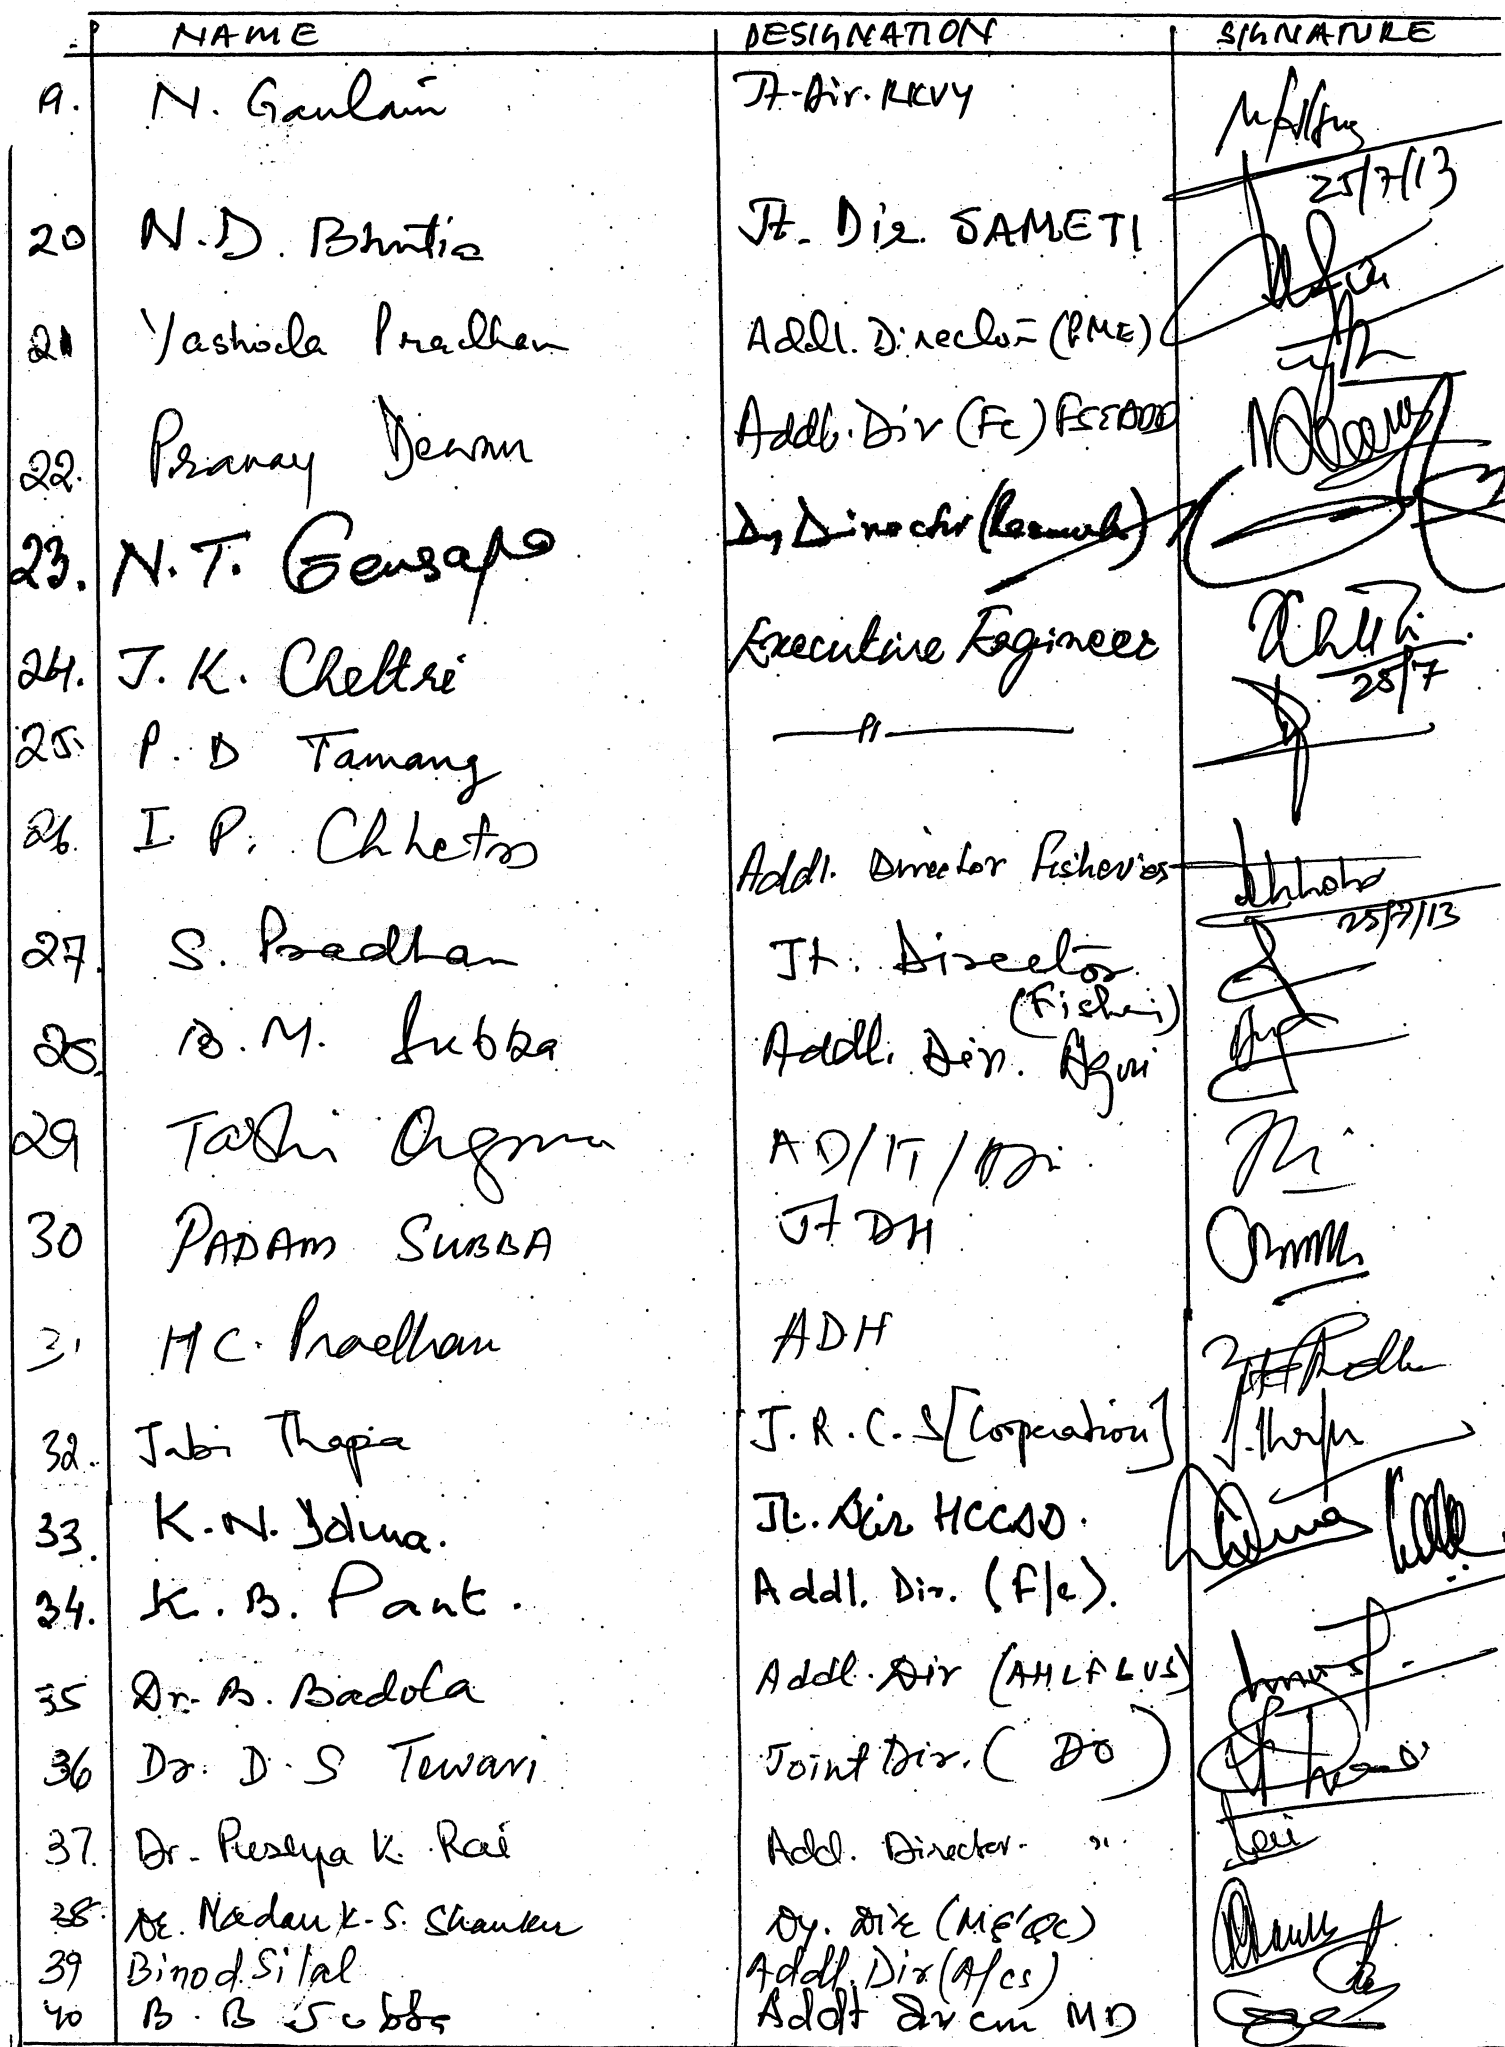 NAME DESIGNATION SIGNATURE
19. N. Gautam Jt-Dir. RKVY
25/7/13
20 N.D. Bhutia Jt. Dir. SAMETI
21 Yashoda Pradhan Addl. Director (PME)
22. Pranay Dewan Addl. Dir (Fc) FSEADD
23. N.T. Gensapa Dy Director
24. J. K. Chettri Executive Engineer
25/7
25. P. D Tamang —〃—
26. I. P. Chhetri Addl. Director Fisheries
25/7/13
27. S. Pradhan Jt. Director
(Fisheri)
28. B. M. Subba Addl. Dir. Agri
29 Tashi Ongmu AD/IT/
30 PADAM SUBBA Jt DH
31 HC. Pradhan ADH
32. Jabi Thapa J. R. C. S [Corporation]
J. Thapa
33. K.N. Yolma. Jt. Dir HCCDD.
34. K. B. Pant. Addl. Dir. (F/c).
35 Dr. B. Badola Addl. Dir (AHLF&VS)
36 Dr. D. S Tewari Joint Dir. ( Do )
37. Dr. K. Rai Add. Director. 〃
38. Dr. Madan K. S. Shanker Dy. Dir (ME'QC)
39 Binod Sital Addl. Dir (A/cs)
40 B. B Subba Addl MD